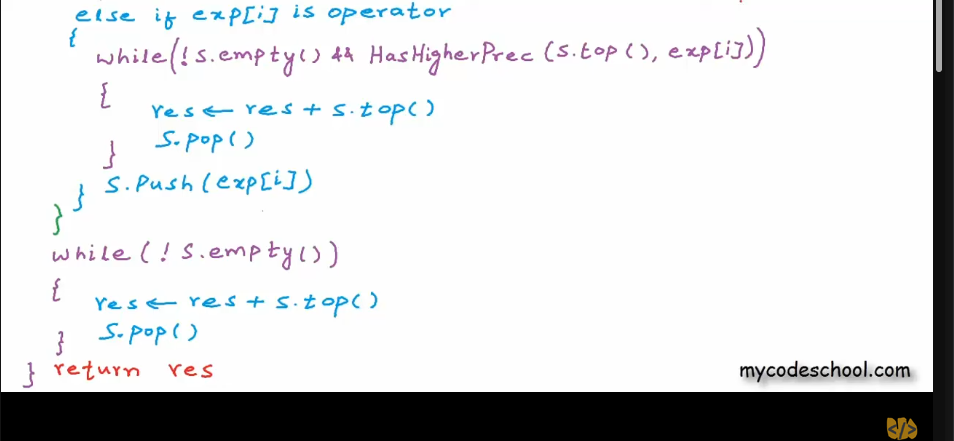 else if exp[i] is operator
{
while(!s.empty() && HasHigherPrec(s.top(), exp[i]))
{
res ← res + s.top()
s.pop()
}
} s.push(exp[i])
}
while(!s.empty())
{
res ← res + s.top()
s.pop()
}
} return res
mycodeschool.com
</>